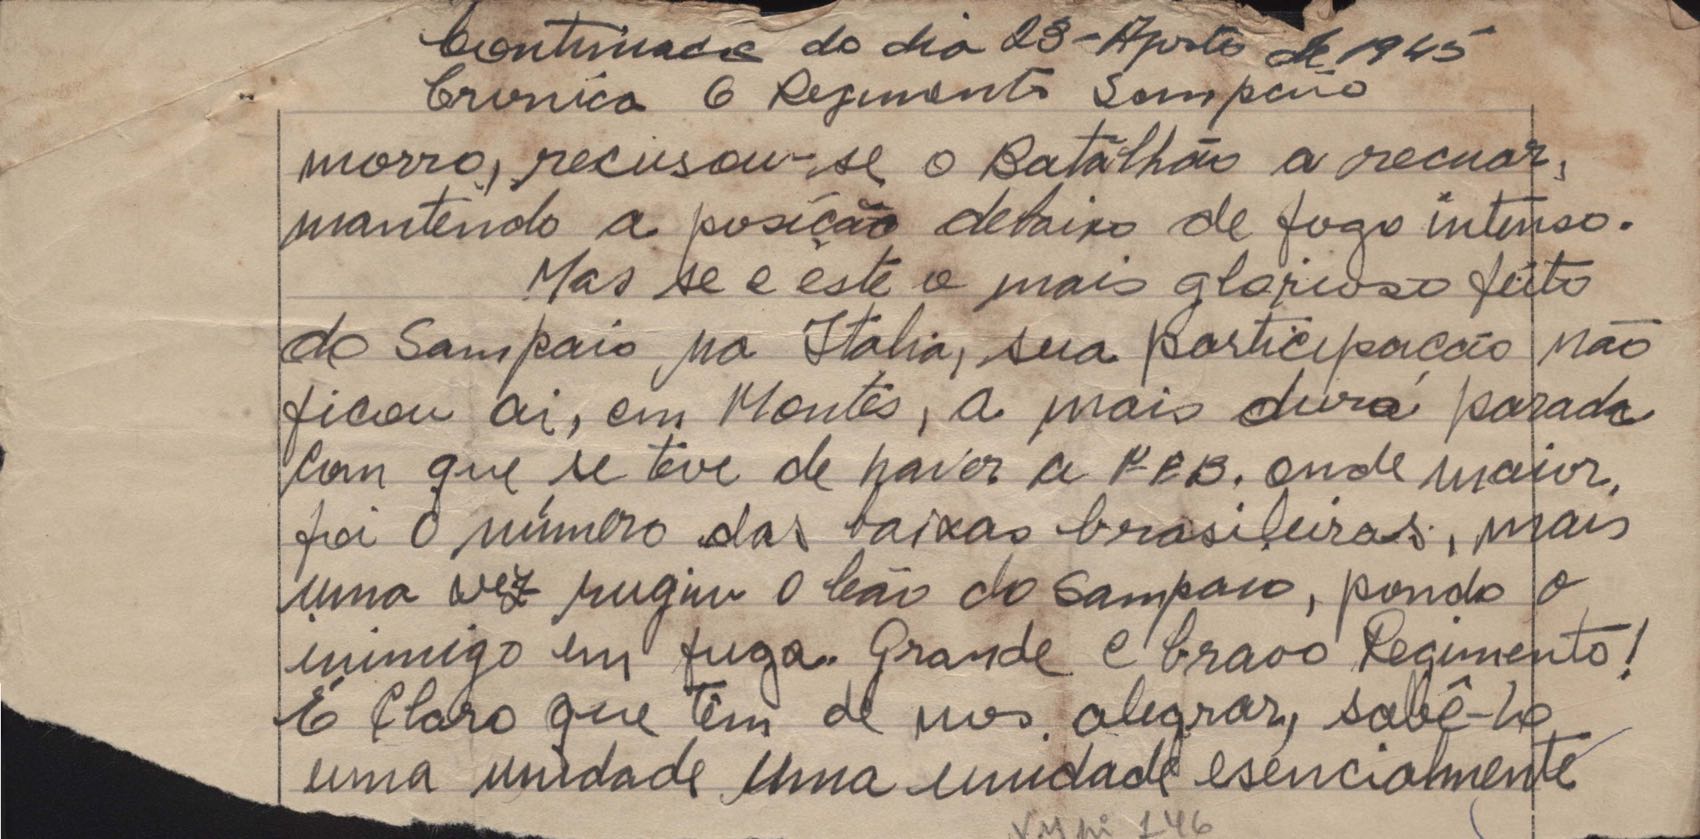 Continuacão do dia 23-Agosto de 1945
Cronica O Regimento Sampaio
morro, recusou-se o Batalhão a recuar,
mantendo a posição debaixo de fogo intenso.
Mas se e este o mais glorioso feito
do Sampaio na Italia, sua participacão não
ficou ai, em Montes, a mais dura parada
com que se teve de haver a F.E.B. onde maior,
foi o número das baixas brasileiras, mais
uma vez rugiu o leão do Sampaio, pondo o
inimigo em fuga. Grande e bravo Regimento!
É Claro que têm de nos alegrar, sabê-lo
uma unidade uma unidade esencialmente
146